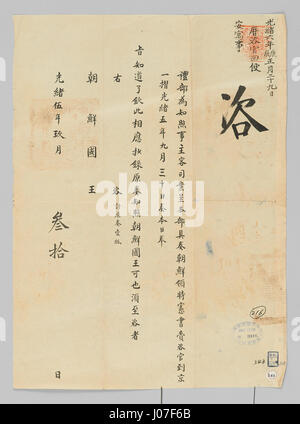 光緒六年正月二十九日
安寓事
咨
禮部為知照事主客司案呈本部具奏朝鮮領時憲書賫咨官到京
一摺光緒五年九月三十日奏本日奉
旨知道了欽此相應抄錄原奏知照朝鮮國王可也須至咨者
右 咨
朝鮮國王
光緒伍年玖月 叁拾 日
alamy
J07F6B